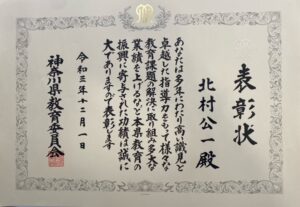 表彰状
北村公一殿
あなたは多年にわたり高い識見と
卓越した指導力をもって様々な
教育課題の解決に取り組み多大な
業績を上げるなど本県教育の
振興に寄与された功績は誠に
大でありますので表彰します
令和三年十二月一日
神奈川県教育委員会